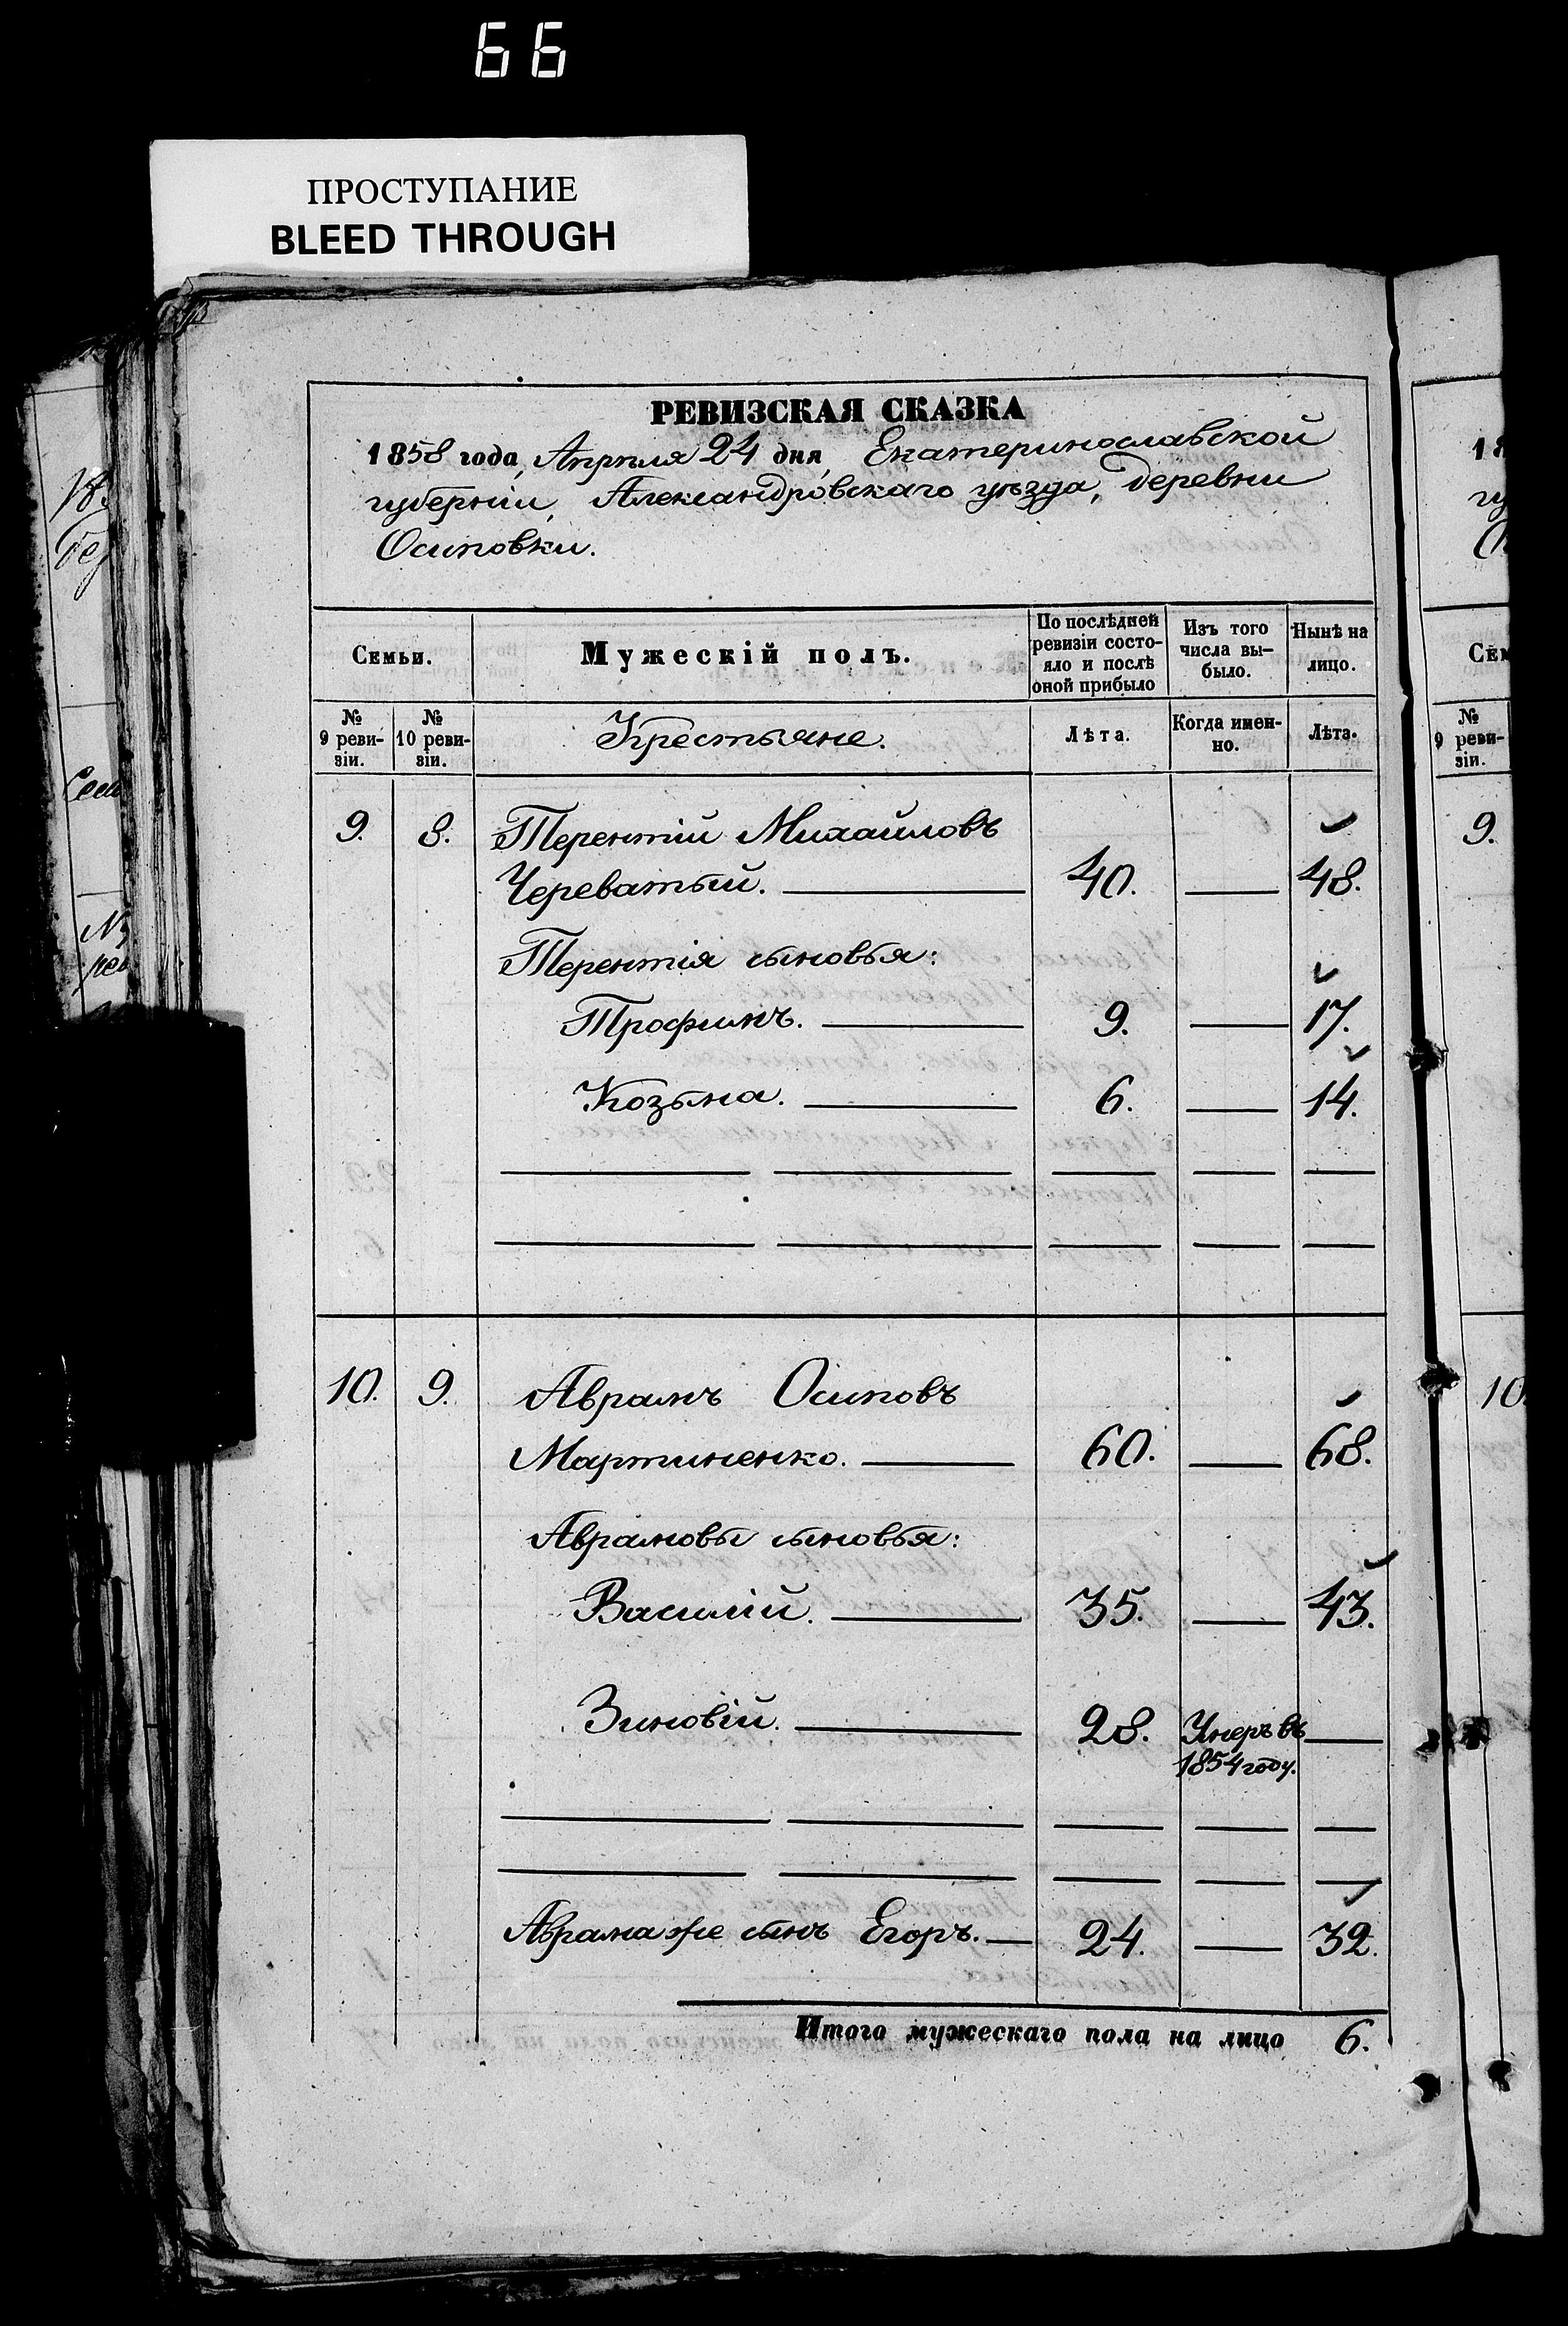 66
ПРОСТУПАНИЕ
BLEED THROUGH
РЕВИЗСКАЯ СКАЗКА
1858 года, Апрѣля 24 дня, Екатеринославской
губерніи, Александровскаго уѣзда, деревни
Осиповки.
Семьи.
Мужескій полъ.
По послѣдней
ревизіи состо-
яло и послѣ
оной прибыло
Изъ того
числа вы-
было.
Нынѣ на
лицо.
№
9 реви-
зіи.
№
10 реви-
зіи.
Крестьяне.
Лѣта.
Когда имен-
но.
Лѣта.
9. 8. Терентій Михайловъ
Череватый. 40. 48.
Терентія сыновья:
Трофимъ. 9. 17.
Козьма. 6. 14.
10. 9. Аврамъ Осиповъ
Мартиненко. 60. 68.
Аврамовы сыновья:
Василій. 35. 43.
Зиновій. 28. Умеръ въ
1854 году.
Аврама же сынъ Егоръ. 24. 32.
Итого мужескаго пола на лицо 6.
18
Сем
№
9 реви-
зіи.
9.
10.